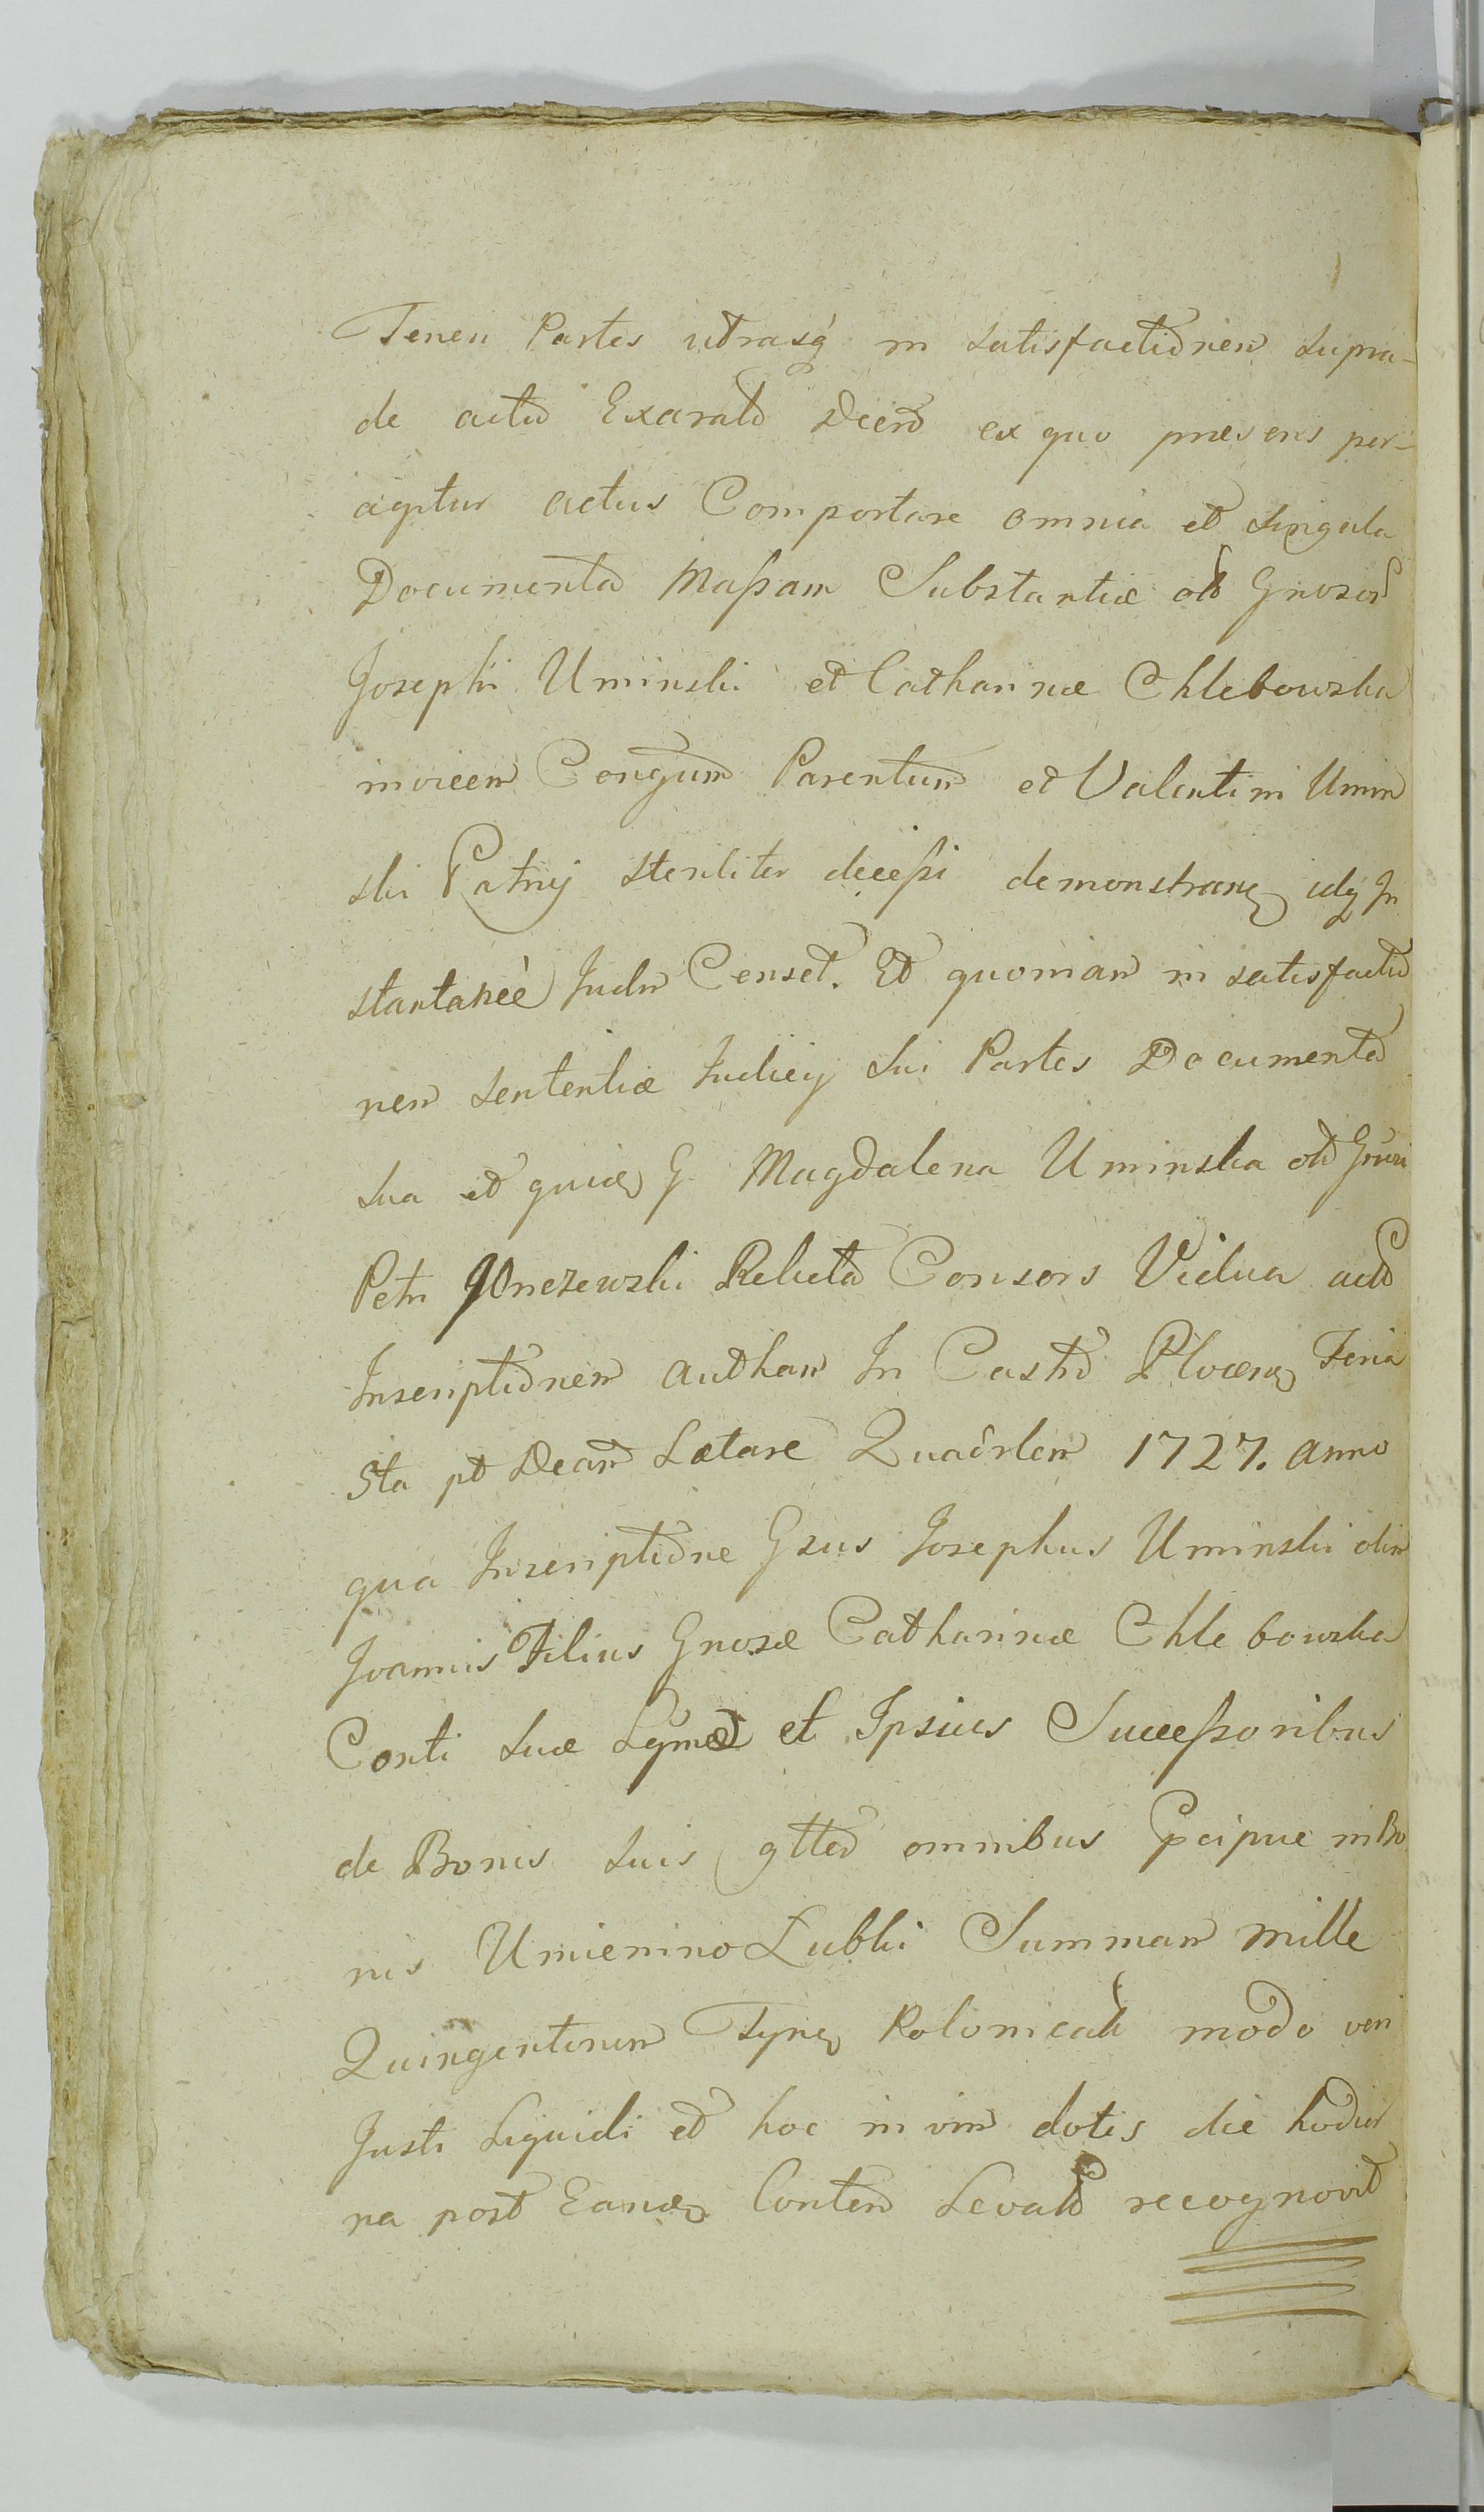 Teneri Partes utrasq́ in satisfactiõnem supra-
de actũ Exaratũ Decrũ ex quo præsens per-
agitur actus Comportare omnia et singula
Documenta Maſsam Substantiæ olĩ Gnosor̃
Josephi Uminski et Catharinæ Chlebowska
invicem Conjgum̃ Parentum et Valentini Umin
ski Patruj steriliter deceſsi demonstranꝫ idq̃ In
stantaneè Judm̃ Censet. Et quoniam in satisfactiõ
nem sententiæ Judicij sui Partes Documenta
sua et quidꝫ G. Magdalena Uminska olĩ Gnosi
Petri Gnezewski Relicta Consors Vidua actũ
Inscriptiõnem autham̃ In Castrõ Plocenꝫ Feria
5ta pt Dcam̃ Lætare Quaðrlem̃ 1727. anno
quà Inscriptiõne Gsus Josephus Uminski olim
Joannis Filius Gnosæ Catharinæ Chlebowska
Conti suæ Lgmæ et Ipsius Succeſsoribus
de Bonis suis gtter̃ omnibus Pcipue in Bo
nis Umienino Łubki Summam Mille
Quingentorum Tynꝫ Polonicaliũ modo veri
Justi Liquidi et hoc in vim dotis die hodier
na post Eandꝫ Contem̃ Levatũ recognovit